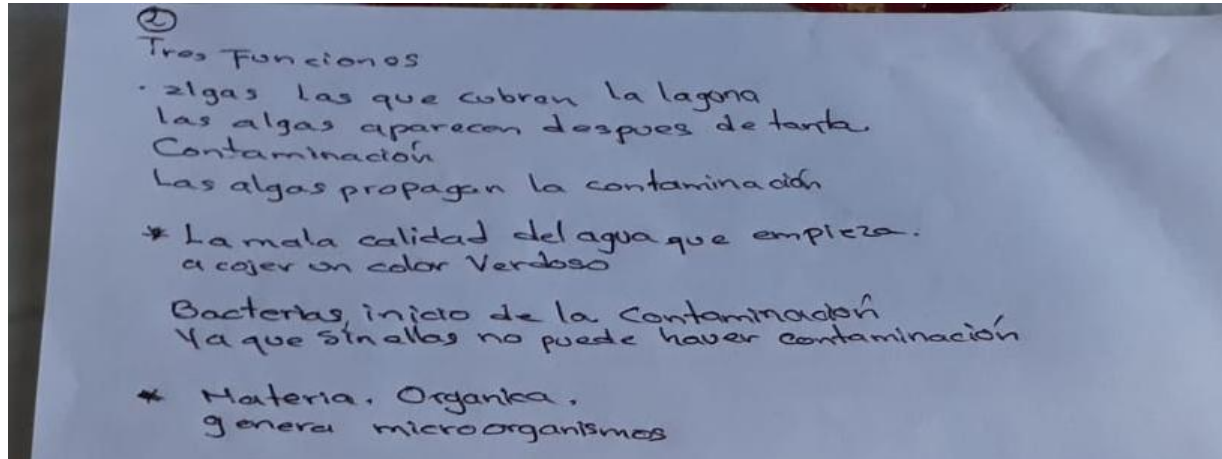 ②
Tres Funciones
· algas las que cubren la lagona
las algas aparecen despues de tanta.
Contaminación
Las algas propagan la contaminación
* La mala calidad del agua que empieza.
a cojer un color Verdoso
Bacterias, inicio de la Contaminación
Ya que sin ellas no puede haver contaminación
* Materia. Organica.
genera microorganismos